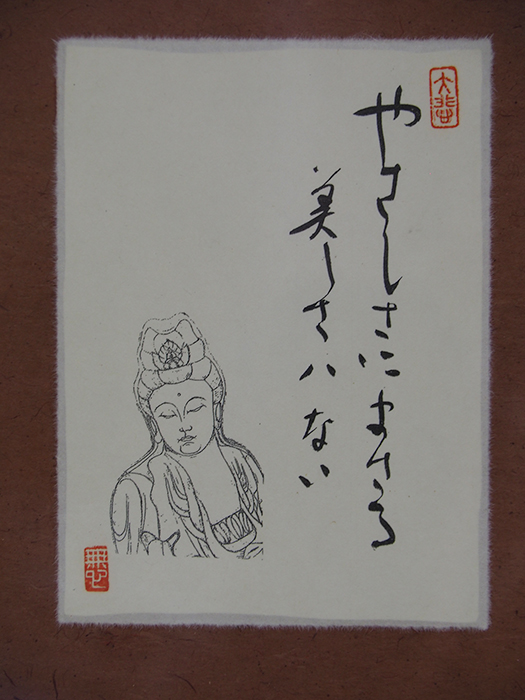 大悲
やさしさにまさる
美しさハない
無心